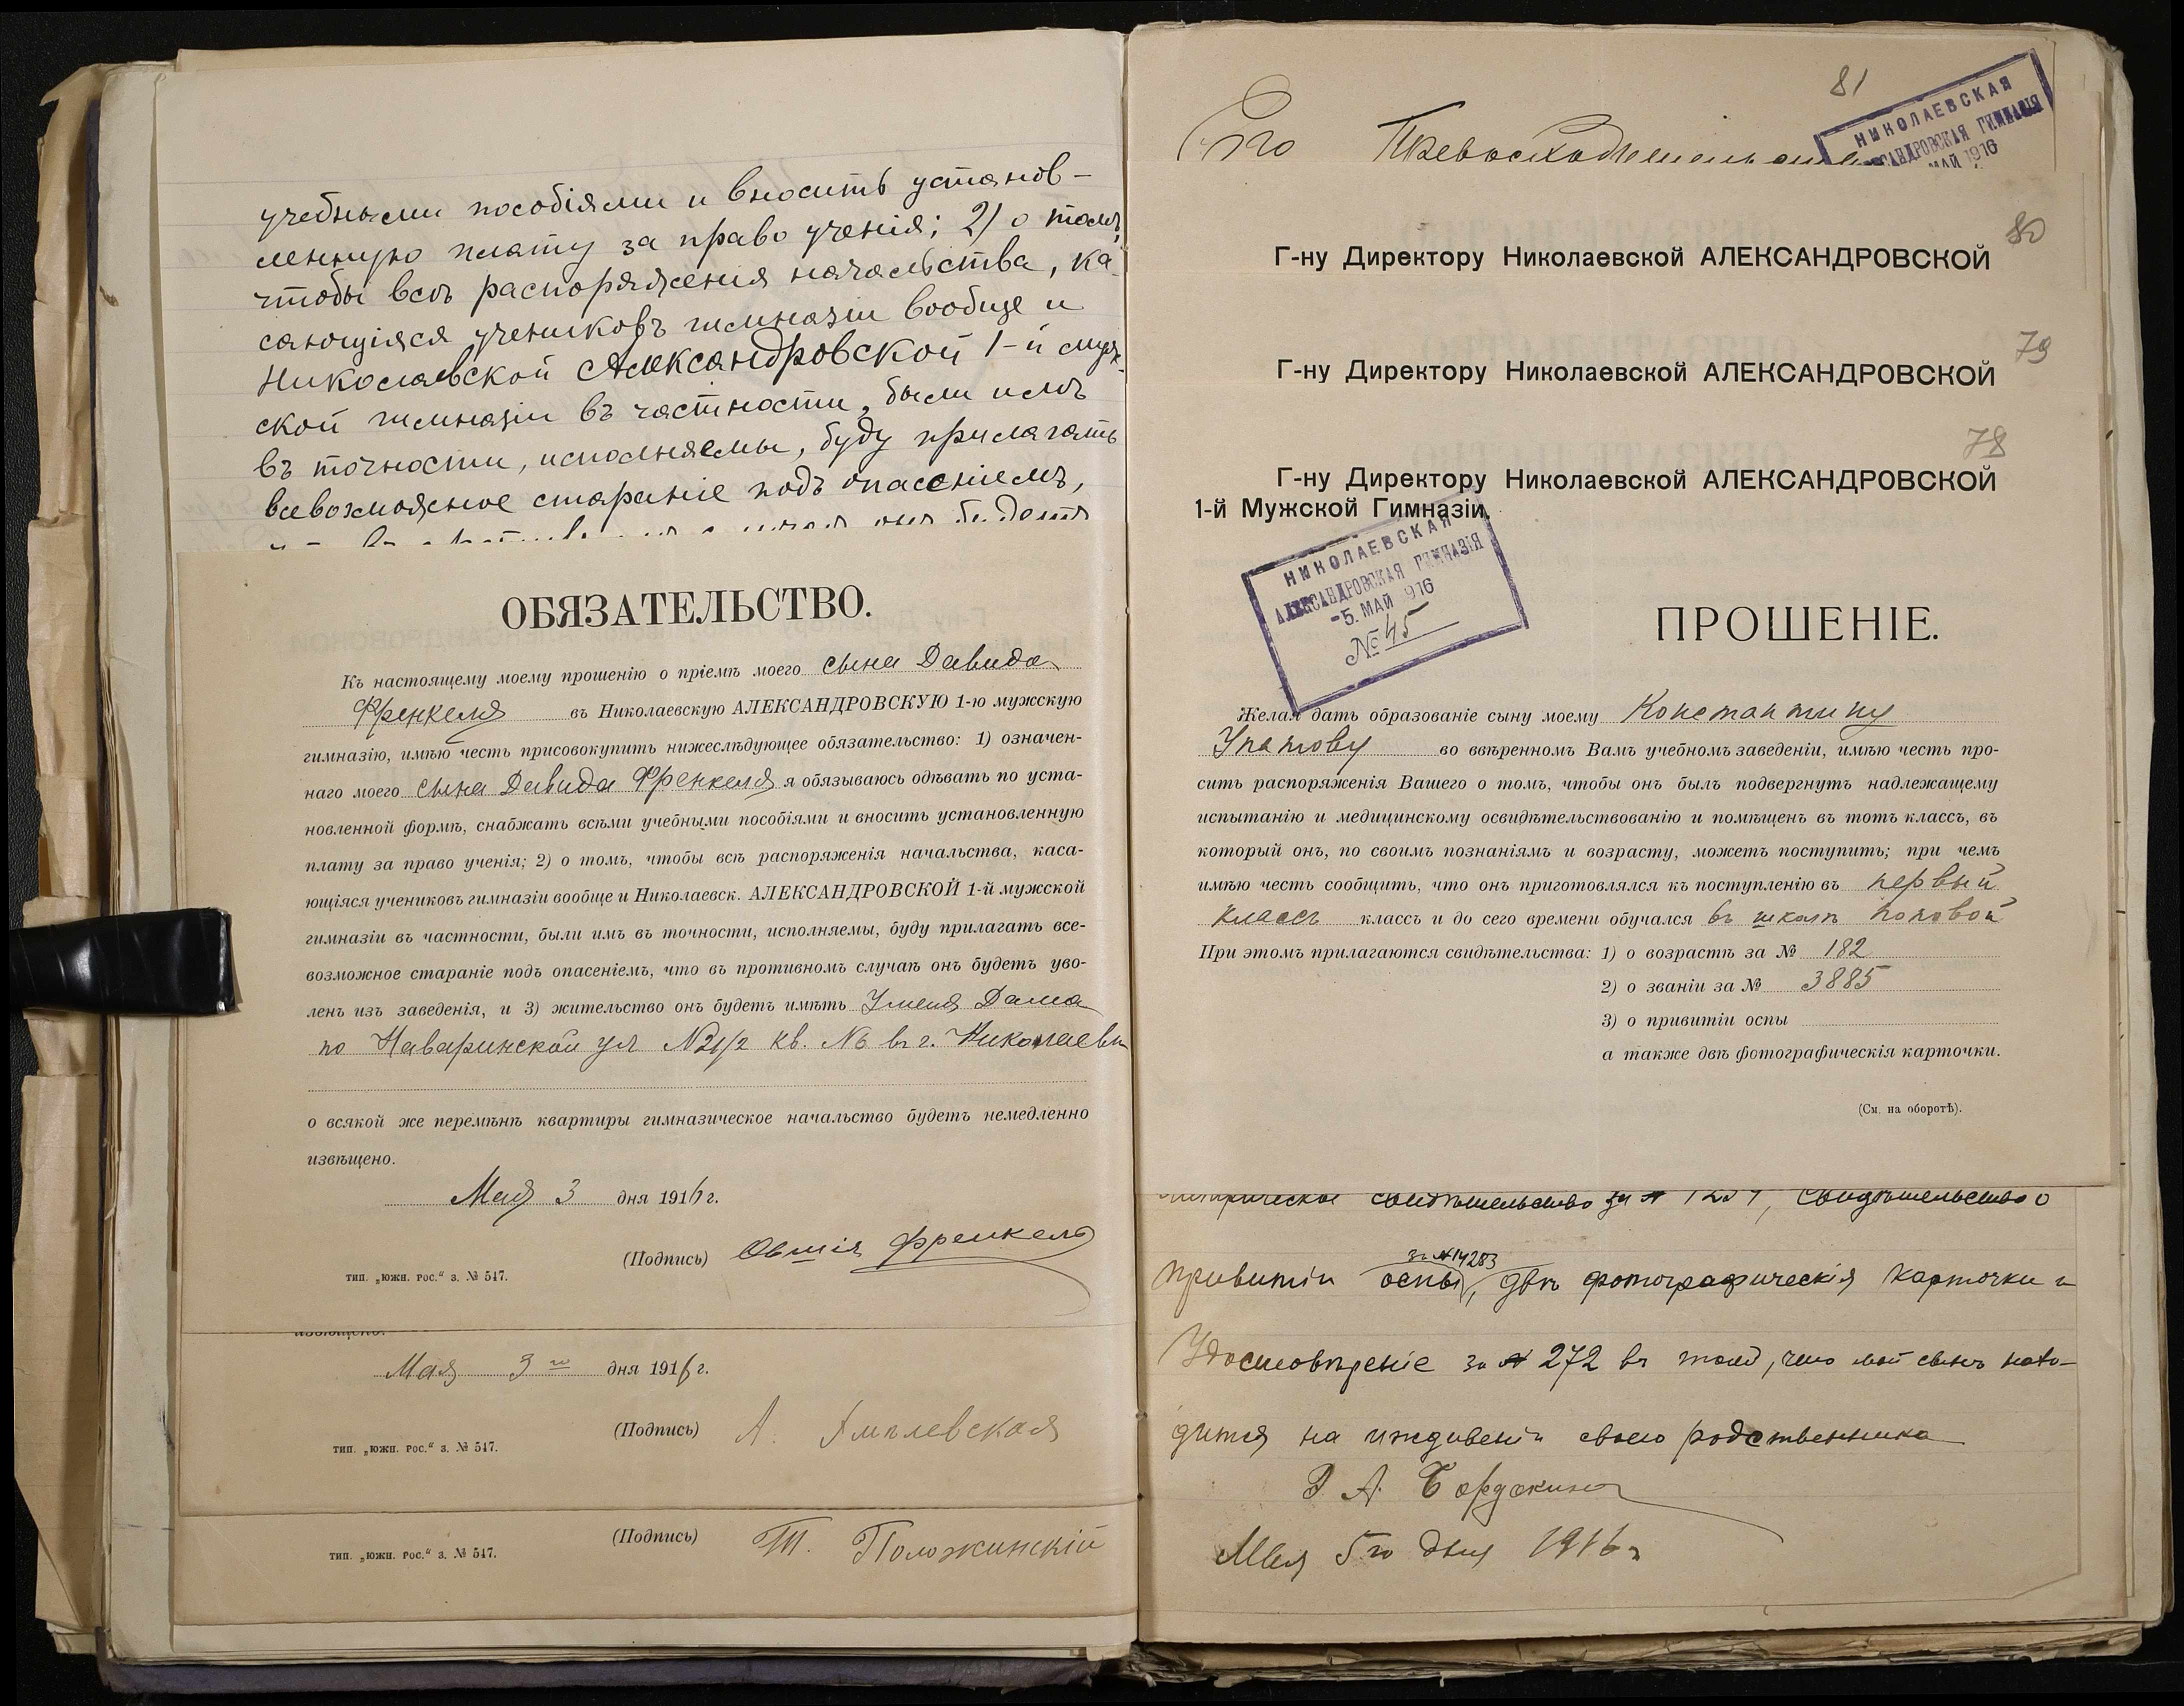 учебными пособіями и вносить установ-
ленную плату за право ученія; 2) о томъ,
чтобы всѣ распоряженія начальства, ка-
сающіяся учениковъ гимназіи вообще и
Николаевской Александровской 1-й муж-
ской гимназіи въ частности, были имъ
въ точности, исполняемы, буду прилагать
всевозможное стараніе подъ опасеніемъ,
ОБЯЗАТЕЛЬСТВО.
Къ настоящему моему прошенію о пріемѣ моего сына Давида
Френкеля въ Николаевскую АЛЕКСАНДРОВСКУЮ 1-ю мужскую
гимназію, имѣю честь присовокупить нижеслѣдующее обязательство: 1) означен-
наго моего сына Давида Френкеля я обязываюсь одѣвать по уста-
новленной формѣ, снабжать всѣми учебными пособіями и вносить установленную
плату за право ученія; 2) о томъ, чтобы всѣ распоряженія начальства, каса-
ющіяся учениковъ гимназіи вообще и Николаевск. АЛЕКСАНДРОВСКОЙ 1-й мужской
гимназіи въ частности, были имъ въ точности, исполняемы, буду прилагать все-
возможное стараніе подъ опасеніемъ, что въ противномъ случаѣ онъ будетъ уво-
ленъ изъ заведенія, и 3) жительство онъ будетъ имѣть У меня Дома
по Наваринской ул № 21/2 кв. № в г. Николаевѣ
о всякой же перемѣнѣ квартиры гимназическое начальство будетъ немедленно
извѣщено.
Мая 3 дня 1916 г.
(Подпись) Овшія Френкель
тип. „южн. рос.“ з. № 547.
извѣщено.
Мая 3 го дня 1916 г.
(Подпись) А.
тип. „южн. рос.“ з. № 547.
(Подпись) Т. Положинскій
тип. „южн. рос.“ з. № 547.
81
Его
НИКОЛАЕВСКАЯ
АЛЕКСАНДРОВСКАЯ ГИМНАЗІЯ
МАЙ 1916
80
Г-ну Директору Николаевской АЛЕКСАНДРОВСКОЙ
79
Г-ну Директору Николаевской АЛЕКСАНДРОВСКОЙ
78
Г-ну Директору Николаевской АЛЕКСАНДРОВСКОЙ
1-й Мужской Гимназіи.
НИКОЛАЕВСКАЯ
АЛЕКСАНДРОВСКАЯ ГИМНАЗІЯ
-5. МАЙ 916
№ 45
ПРОШЕНІЕ.
Желая дать образованіе сыну моему Константину
Упатову во ввѣренномъ Вамъ учебномъ заведеніи, имѣю честь про-
сить распоряженія Вашего о томъ, чтобы онъ былъ подвергнутъ надлежащему
испытанію и медицинскому освидѣтельствованію и помѣщенъ въ тотъ классъ, въ
который онъ, по своимъ познаніямъ и возрасту, можетъ поступить; при чемъ
имѣю честь сообщить, что онъ приготовлялся къ поступленію въ первый
классъ классъ и до сего времени обучался въ школѣ Поповой
При этомъ прилагаются свидѣтельства: 1) о возрастѣ за № 182
2) о званіи за № 3885
3) о привитіи оспы
а также двѣ фотографическія карточки.
(См. на оборотѣ).
свидѣтельство за № свидѣтельство о
за № 14283
привитіи оспы, двѣ фотографическія карточки и
Удостовѣреніе за № 272 въ томъ, что мой сынъ нахо-
дится на иждивеніи своего родственника
Мая 5го дня 1916 г